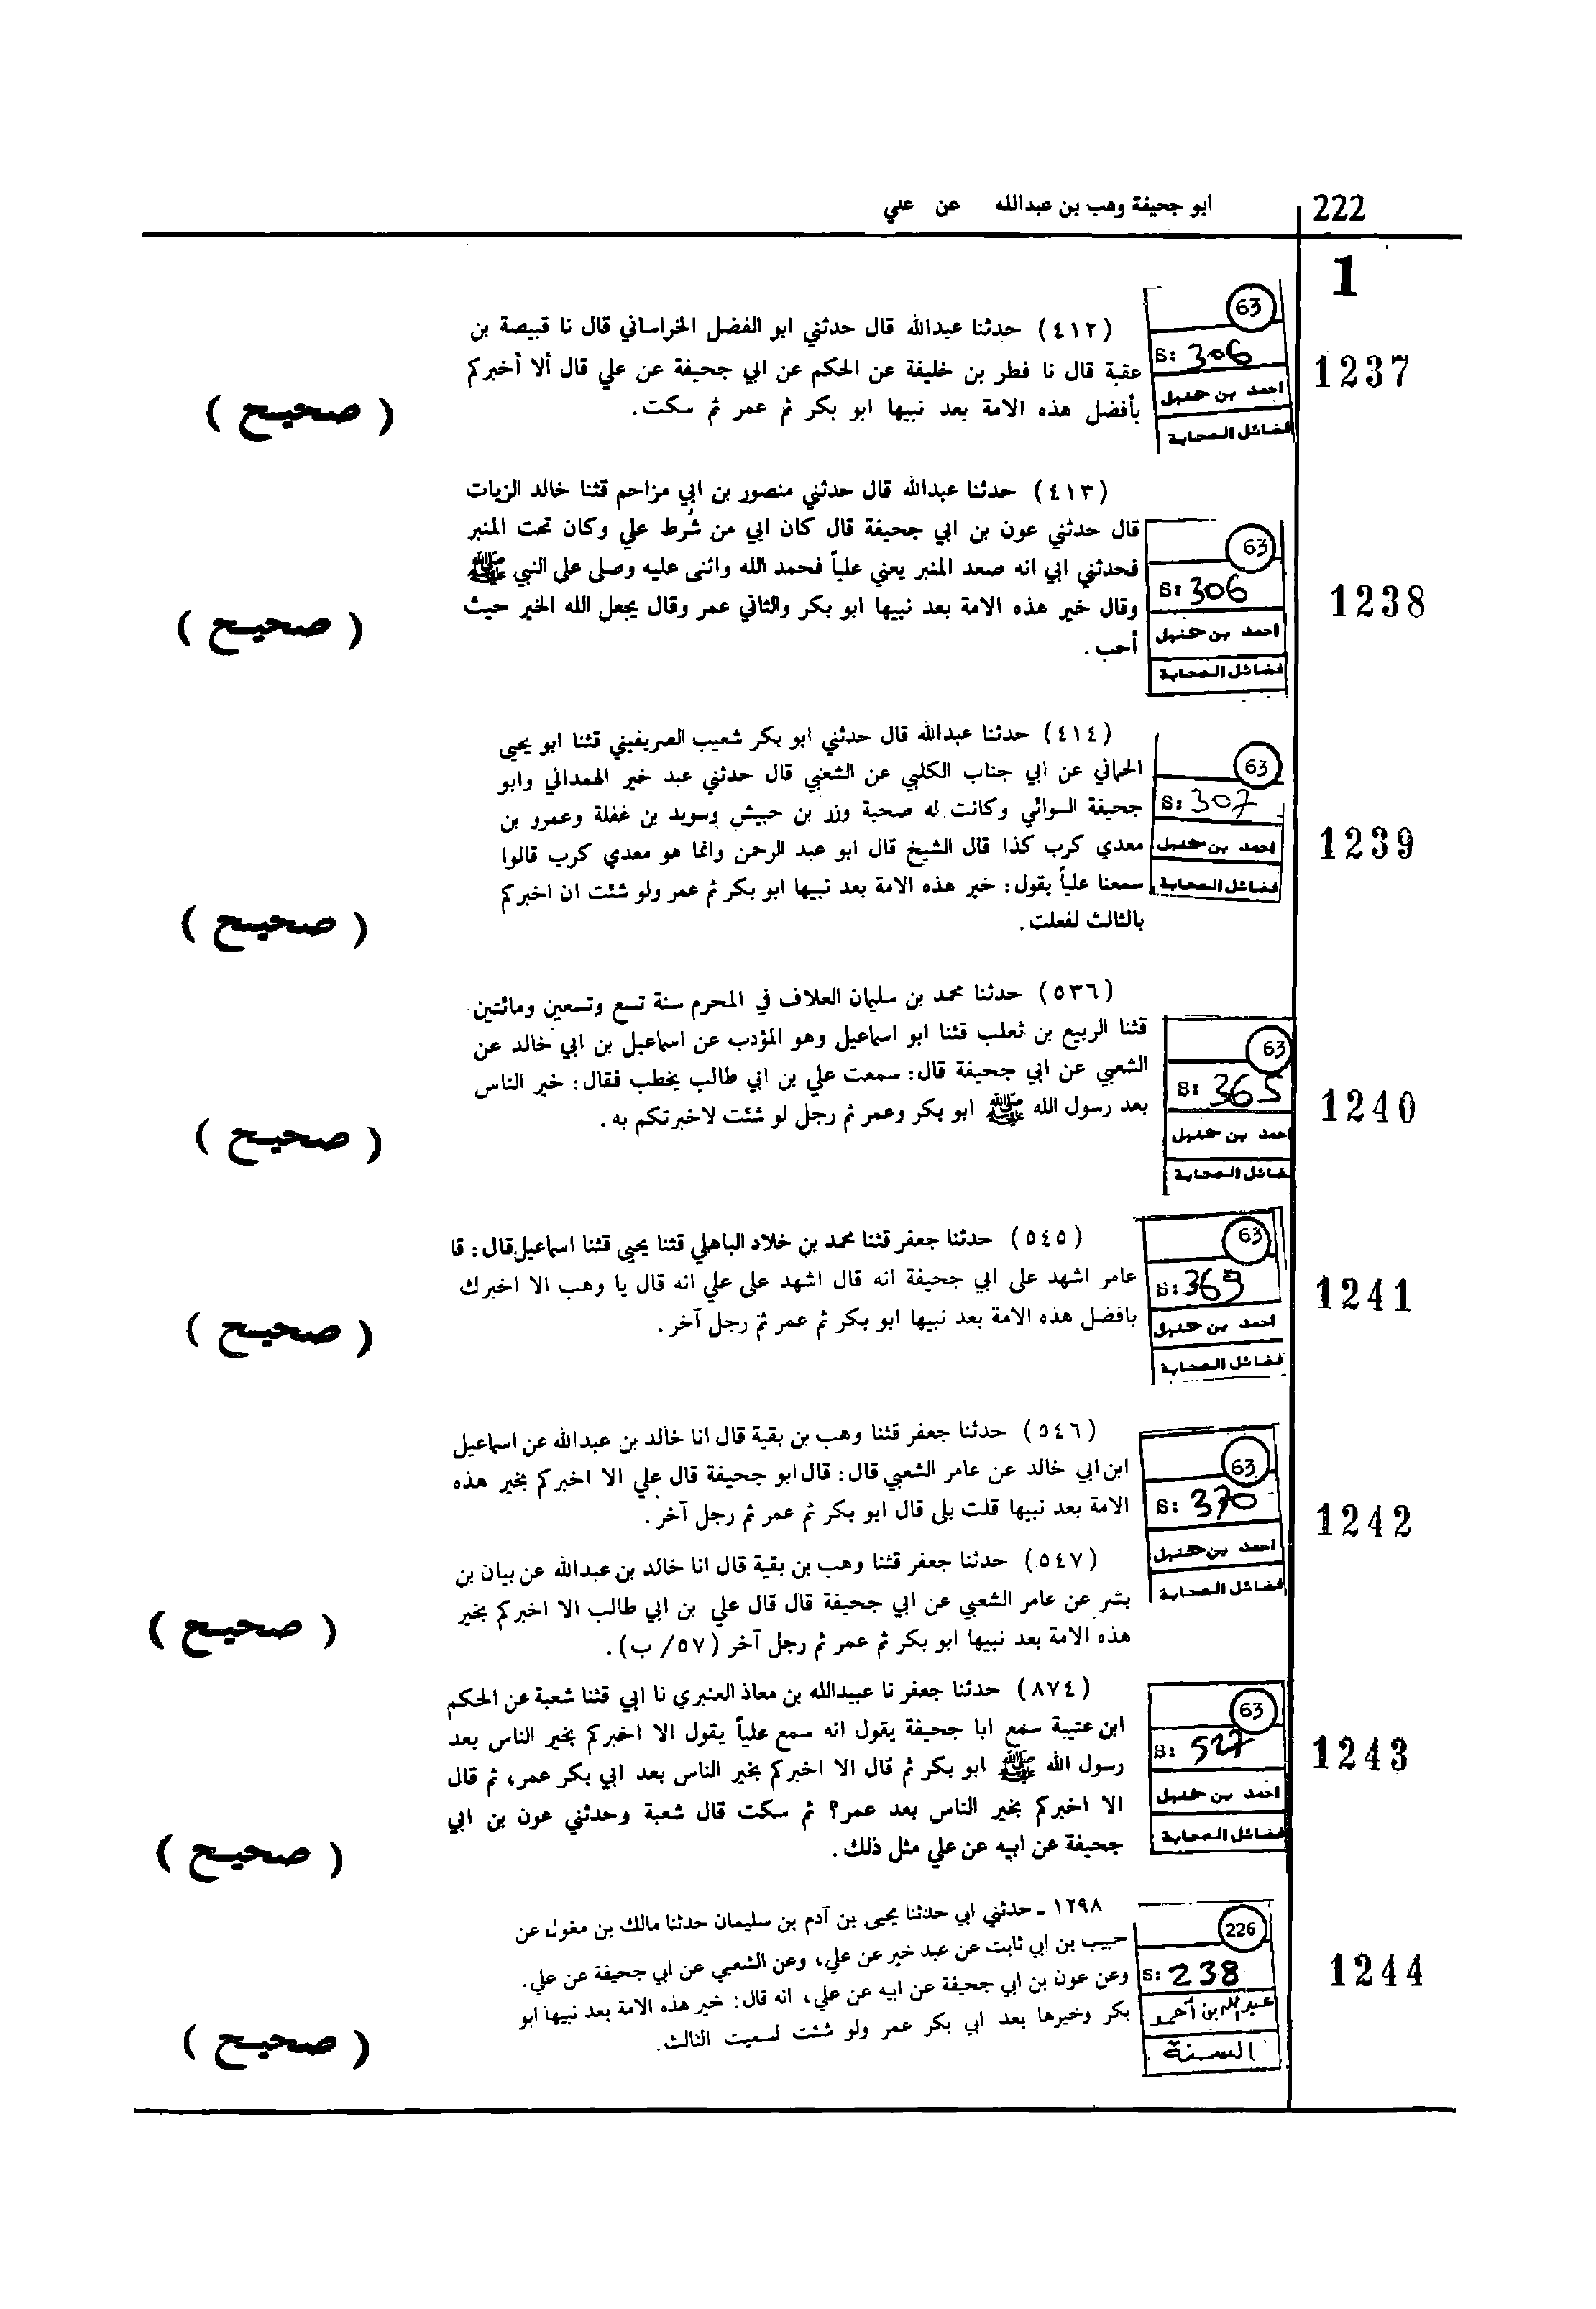 222
ابو جحيفة وهب بن عبدالله عن علي
1
1237
63
S: 306
احمد بن حنبل
فضائل الصحابة
(٤١٢) حدثنا عبدالله قال حدثني ابو الفضل الخراساني قال نا قبيصة بن
عقبة قال نا فطر بن خليفة عن الحكم عن ابي جحيفة عن علي قال ألا أخبركم
بأفضل هذه الامة بعد نبيها ابو بكر ثم عمر ثم سكت.
( صحيح )
1238
63
S: 306
احمد بن حنبل
فضائل الصحابة
(٤١٣) حدثنا عبدالله قال حدثني منصور بن ابي مزاحم قثنا خالد الزيات
قال حدثني عون بن ابي جحيفة قال كان ابي من شُرط علي وكان تحت المنبر
فحدثني ابي انه صعد المنبر يعني علياً فحمد الله واثنى عليه وصلى على النبي ﷺ
وقال خير هذه الامة بعد نبيها ابو بكر والثاني عمر وقال يجعل الله الخير حيث
أحب.
( صحيح )
1239
63
S: 307
احمد بن حنبل
فضائل الصحابة
(٤١٤) حدثنا عبدالله قال حدثني ابو بكر شعيب الصريفيني قثنا ابو يحيى
الحماني عن ابي جناب الكلبي عن الشعبي قال حدثني عبد خير الهمداني وابو
جحيفة السوائي وكانت له صحبة وزر بن حبيش وسويد بن غفلة وعمرو بن
معدي كرب كذا قال الشيخ قال ابو عبد الرحمن وانما هو معدي كرب قالوا
سمعنا علياً يقول: خير هذه الامة بعد نبيها ابو بكر ثم عمر ولو شئت ان اخبركم
بالثالث لفعلت.
( صحيح )
1240
63
S: 365
احمد بن حنبل
فضائل الصحابة
(٥٣٦) حدثنا محمد بن سليمان العلاف في المحرم سنة تسع وتسعين ومائتين
قثنا الربيع بن ثعلب قثنا ابو اسماعيل وهو المؤدب عن اسماعيل بن ابي خالد عن
الشعبي عن ابي جحيفة قال: سمعت علي بن ابي طالب يخطب فقال: خير الناس
بعد رسول الله ﷺ ابو بكر وعمر ثم رجل لو شئت لاخبرتكم به.
( صحيح )
1241
63
S: 369
احمد بن حنبل
فضائل الصحابة
(٥٤٥) حدثنا جعفر قثنا محمد بن خلاد الباهلي قثنا يحيى قثنا اسماعيل قال: قا
عامر اشهد على ابي جحيفة انه قال اشهد على علي انه قال يا وهب الا اخبرك
بافضل هذه الامة بعد نبيها ابو بكر ثم عمر ثم رجل آخر.
( صحيح )
1242
63
S: 370
احمد بن حنبل
فضائل الصحابة
(٥٤٦) حدثنا جعفر قثنا وهب بن بقية قال انا خالد بن عبدالله عن اسماعيل
ابن ابي خالد عن عامر الشعبي قال: قال ابو جحيفة قال علي الا اخبركم بخير هذه
الامة بعد نبيها قلت بلى قال ابو بكر ثم عمر ثم رجل آخر.
(٥٤٧) حدثنا جعفر قثنا وهب بن بقية قال انا خالد بن عبدالله عن بيان بن
بشر عن عامر الشعبي عن ابي جحيفة قال قال علي بن ابي طالب الا اخبركم بخير
هذه الامة بعد نبيها ابو بكر ثم عمر ثم رجل آخر (٥٧/ ب).
( صحيح )
1243
63
S: 527
احمد بن حنبل
فضائل الصحابة
(٨٧٤) حدثنا جعفر نا عبيدالله بن معاذ العنبري نا ابي قثنا شعبة عن الحكم
ابن عتيبة سمع ابا جحيفة يقول انه سمع علياً يقول الا اخبركم بخير الناس بعد
رسول الله ﷺ ابو بكر ثم قال الا اخبركم بخير الناس بعد ابي بكر عمر، ثم قال
الا اخبركم بخير الناس بعد عمر؟ ثم سكت قال شعبة وحدثني عون بن ابي
جحيفة عن ابيه عن علي مثل ذلك.
( صحيح )
1244
226
S: 238
عبدالله بن أحمد
السنة
١٢٩٨ ـ حدثني ابي حدثنا يحيى بن آدم بن سليمان حدثنا مالك بن مغول عن
حبيب بن ابي ثابت عن عبد خير عن علي، وعن الشعبي عن ابي جحيفة عن علي.
وعن عون بن ابي جحيفة عن ابيه عن علي، انه قال: خير هذه الامة بعد نبيها ابو
بكر وخيرها بعد ابي بكر عمر ولو شئت لسميت الثالث.
( صحيح )